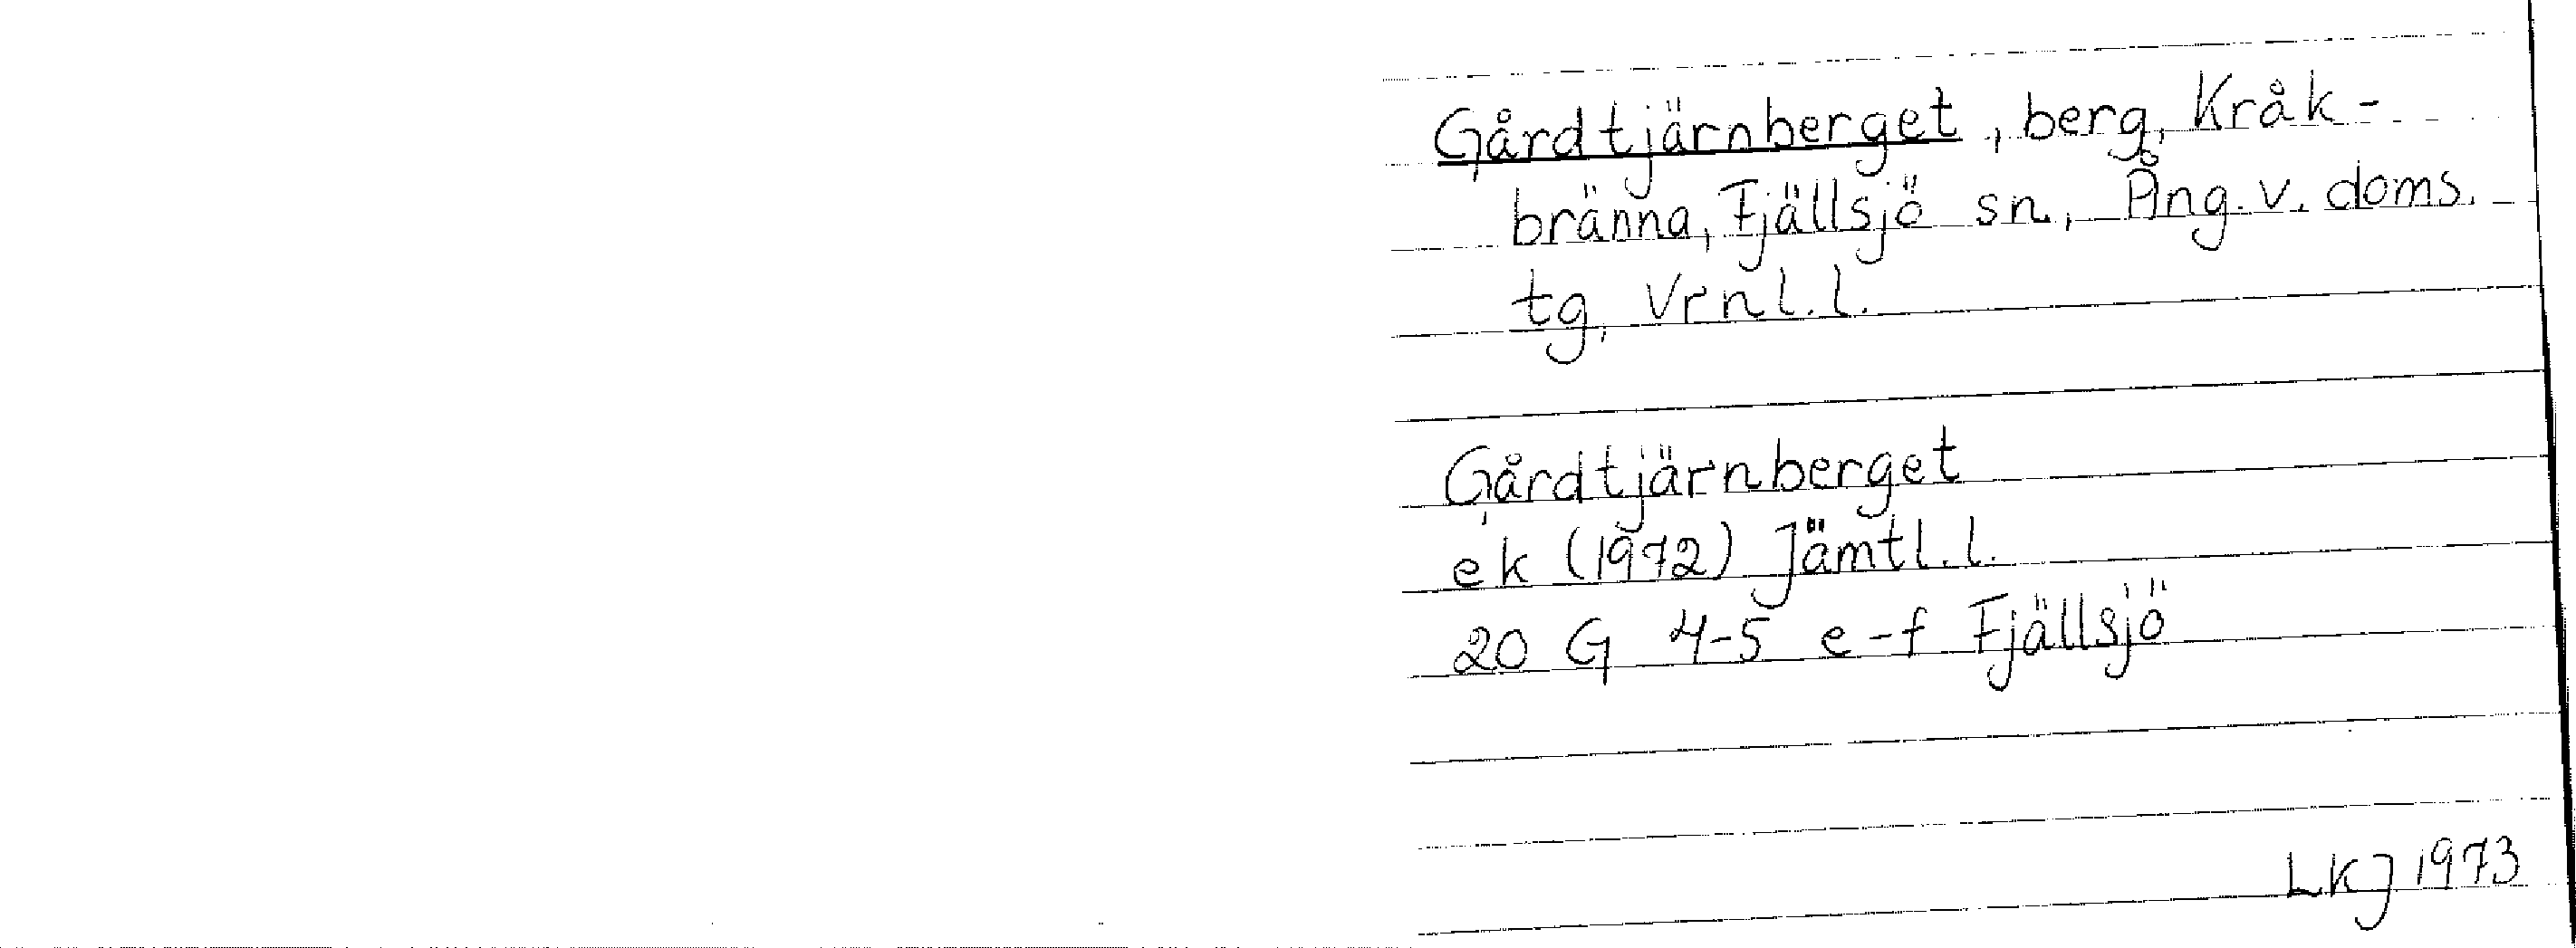 Gårdtjärnberget, berg, Kråk-
bränna, Fjällsjö sn, Ång. v. doms.
tg, Vrnl. l.
Gårdtjärnberget
ek (1972) Jämtl. l.
20 G 4-5 e-f Fjällsjö
LKJ 1973